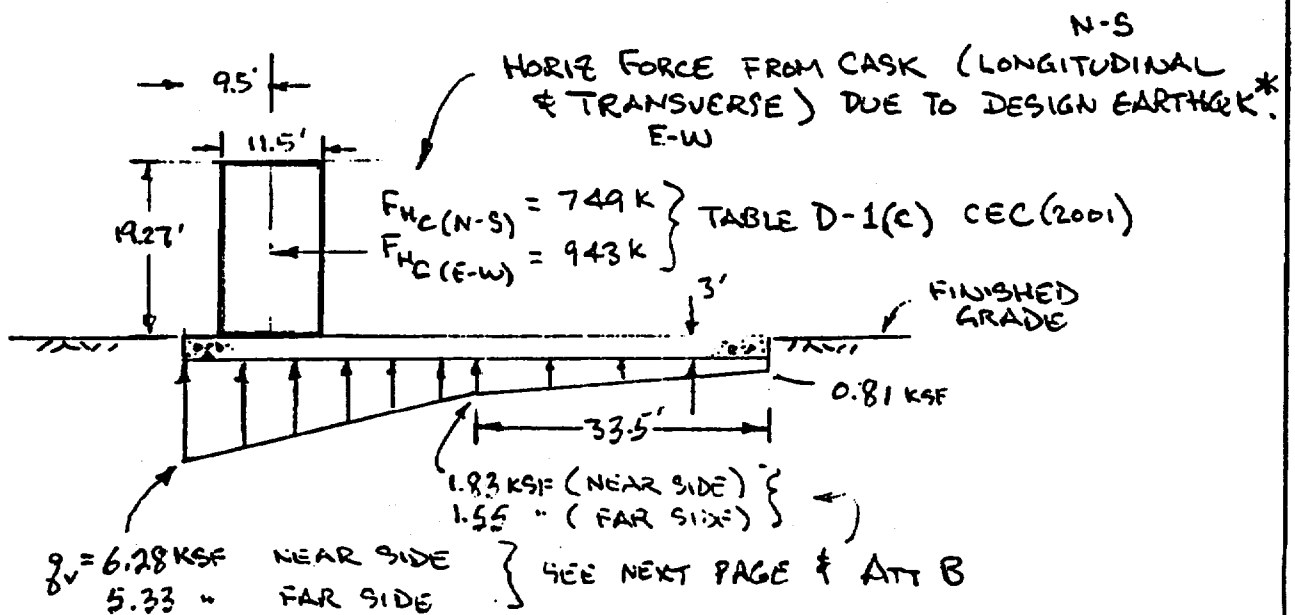 N-S
HORIZ FORCE FROM CASK (LONGITUDINAL
& TRANSVERSE) DUE TO DESIGN EARTHQK*.
E-W
9.5'
11.5'
19.27'
FHC(N-S) = 749 K
FHC(E-W) = 943 K
TABLE D-1(C) CEC (2001)
3'
FINISHED
GRADE
0.81 KSF
33.5'
1.83 KSF (NEAR SIDE)
1.55 " (FAR SIDE)
qv = 6.28 KSF NEAR SIDE
5.33 " FAR SIDE
SEE NEXT PAGE & ATT B